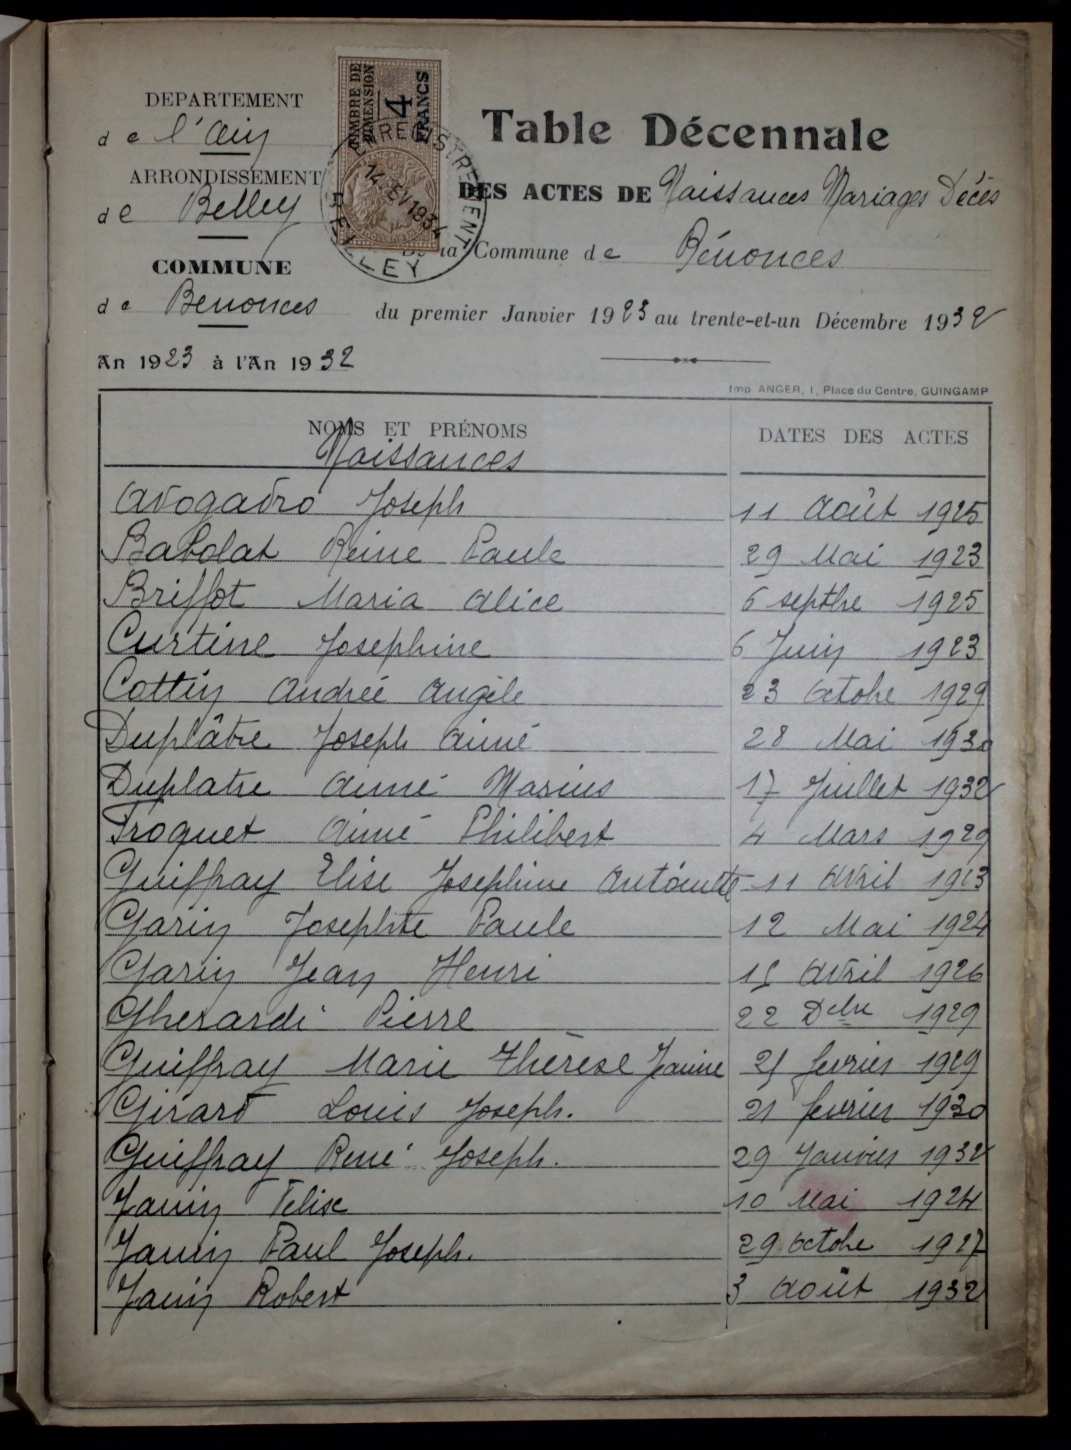 DEPARTEMENT
de l'Ain
ARRONDISSEMENT
de Belley
COMMUNE
de Benonces
An 1923 à l'An 1932
TIMBRE DE DIMENSION
4 FRANCS
ENREGISTREMENT
14 FEV 1934
BELLEY
Table Décennale
DES ACTES DE Naissances Mariages Décès
de la Commune de Bénonces
du premier Janvier 1923 au trente-et-un Décembre 1932
Imp. ANGER, 1, Place du Centre, GUINGAMP
NOMS ET PRÉNOMS DATES DES ACTES
Naissances
Avogadro Joseph 11 Août 1925
Babolat Reine Paule 29 Mai 1923
Briffot Maria Alice 6 septbre 1925
Curtine Josephine 6 Juin 1923
Cottin Andrée Angèle 23 Octobe 1929
Duplâtre Joseph Aimé 28 Mai 1930
Duplatre Aimé Marius 17 Juillet 1932
Froquet Aimé Philibert 4 Mars 1929
Guiffray Elise Josephine Antoinette 11 Avril 1923
Garin Josephte Paule 12 Mai 1924
Garin Jean Henri Avril 1926
Gherardi Pierre 22 Dbre 1929
Guiffray Marie Thérèse Janine fevrier 1929
Girard Louis Joseph. 21 fevrier 1930
Guiffray René Joseph. 29 Janvier 1932
Janin Felix 10 Mai 1924
Janin Paul Joseph. 29 Octobe 1927
Janin Robert 3 Août 1932